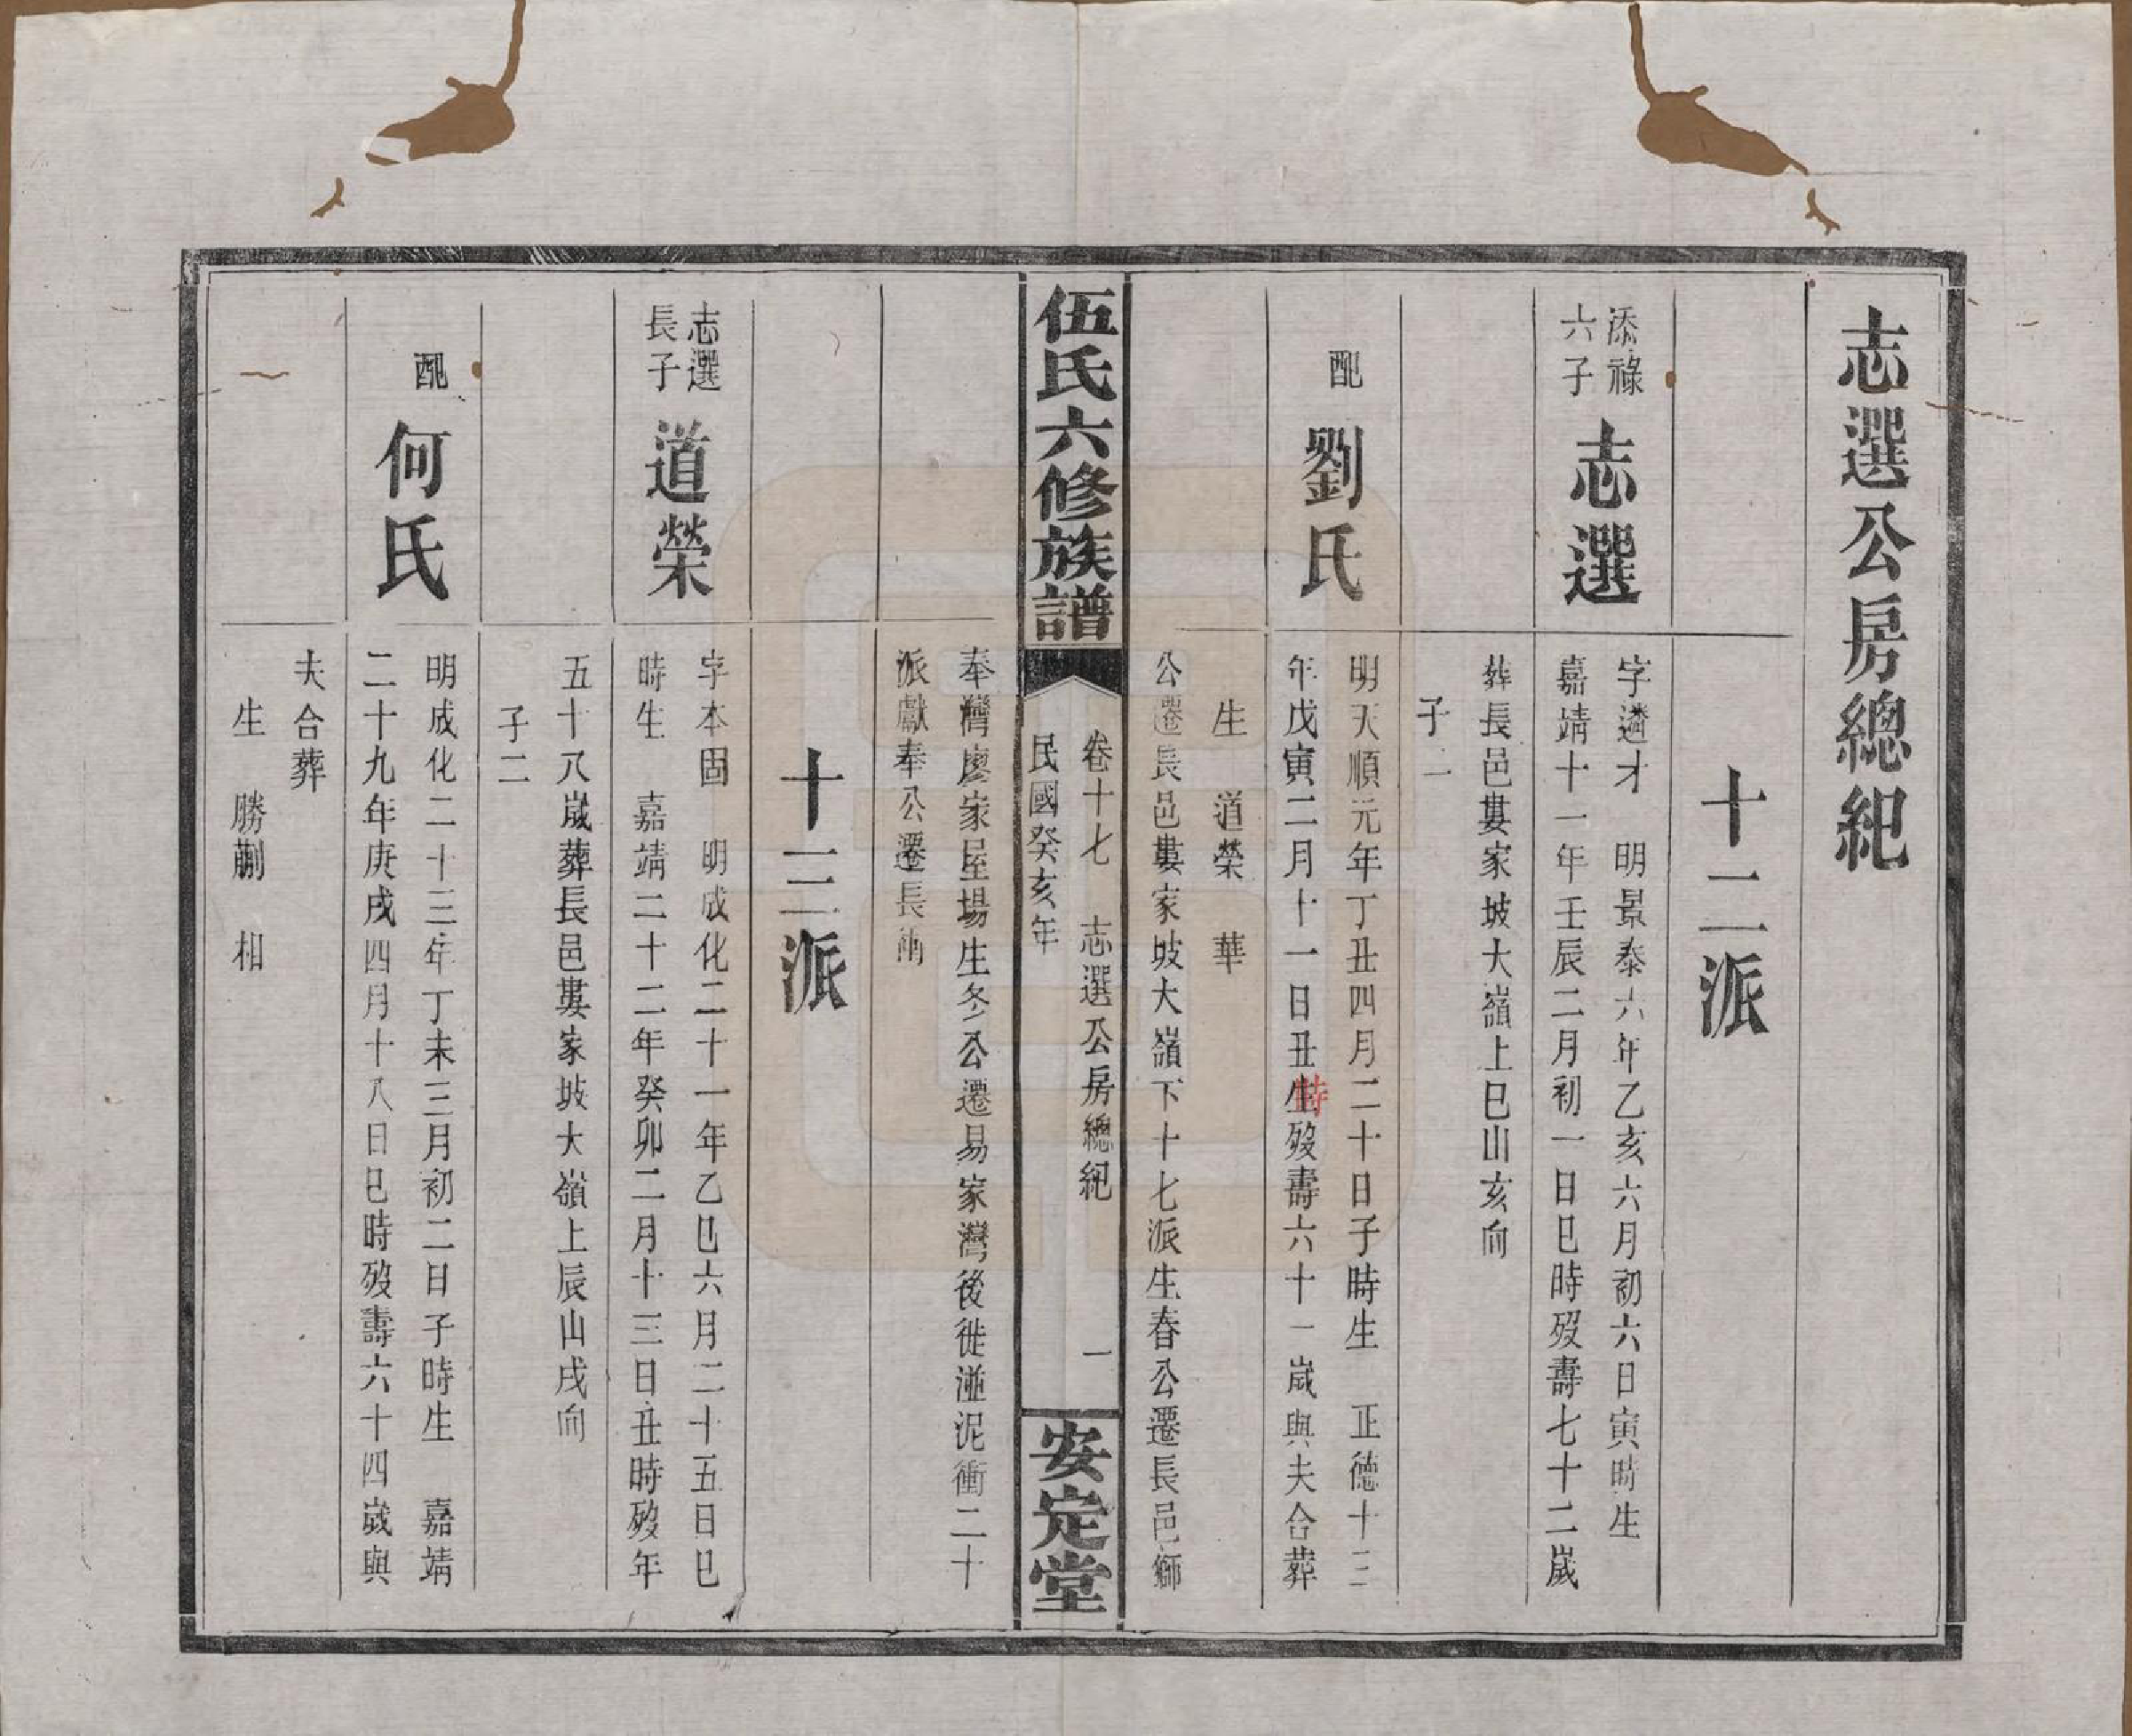 志選公房總紀
十二派
添祿六子
志選
字遴才　明景泰六年乙亥六月初六日寅時生
嘉靖十一年壬辰二月初一日巳時歿壽七十二歲
葬長邑婁家坡大嶺上巳山亥向
子二
配
劉氏
明天順元年丁丑四月二十日子時生　正德十三
年戊寅二月十一日丑生時歿壽六十一歲與夫合葬
生　道榮　華
公遷長邑婁家坡大嶺下十七派生春公遷長邑鄉
伍氏六修族譜
卷十七　志選公房總紀　一
民國癸亥年
安定堂
奉灣廖家屋場生冬公遷易家灣後徙湴泥衝二十
派獻奉公遷長湳
十三派
志選長子
道榮
字本固　明成化二十一年乙巳六月二十五日巳
時生　嘉靖二十二年癸卯二月十三日丑時歿年
五十八歲葬長邑婁家坡大嶺上辰山戌向
子二
配
何氏
明成化二十三年丁未三月初二日子時生　嘉靖
二十九年庚戌四月十八日巳時歿壽六十四歲與
夫合葬
生　勝蒯　相